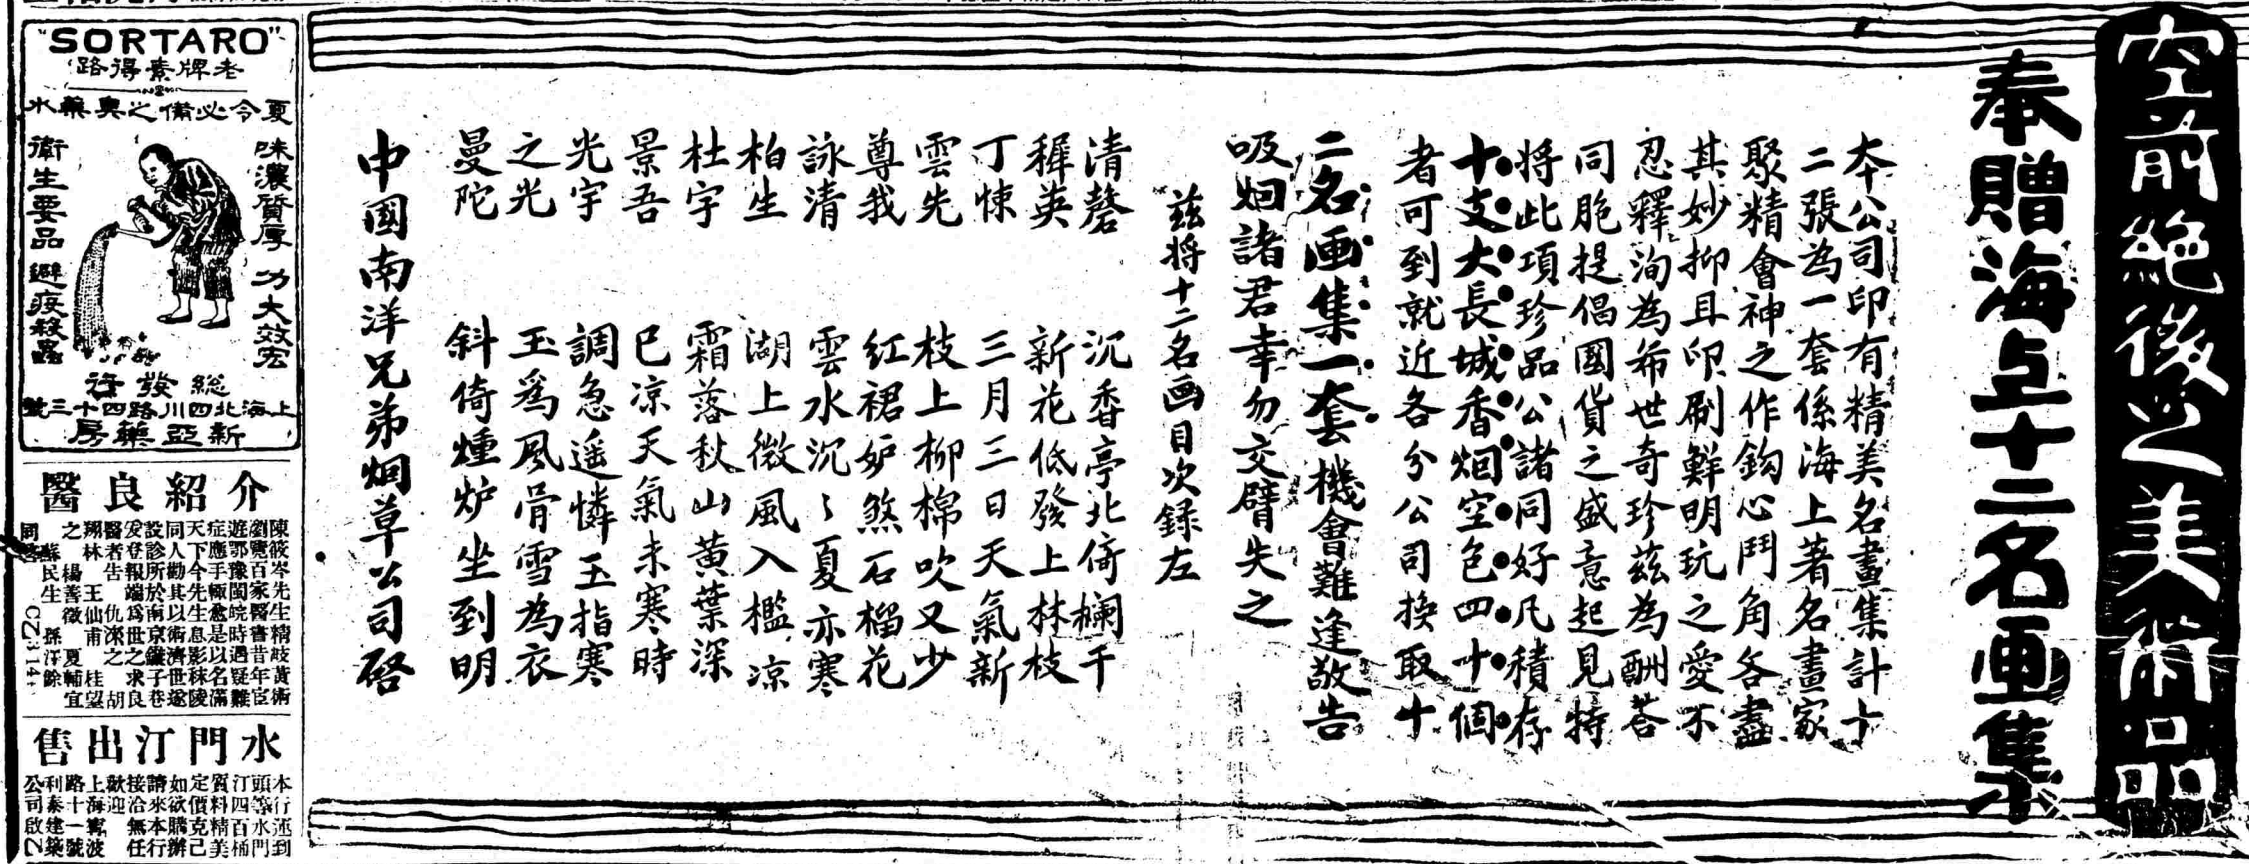 空前絕後之美術品
奉贈海上十二名画集
本公司印有精美名畫集計十
二張為一套係海上著名畫家
聚精會神之作鈎心鬥角各盡
其妙抑且印刷鮮明玩之愛不
忍釋洵為希世奇珍茲為酬荅
同胞提倡國貨之盛意起見特
將此項珍品公諸同好凡積存
十支大長城香烟空包四十個
者可到就近各分公司換取十
二名画集一套機會難逢敬告
吸烟諸君幸勿交臂失之
茲將十二名画目次錄左
清磬 沉香亭北倚欄干
穉英 新花低發上林枝
丁悚 三月三日天氣新
雲先 枝上柳棉吹又少
尊我 紅裙妒煞石榴花
詠清 雲水沉〻夏亦寒
柏生 湖上微風入檻凉
杜宇 霜落秋山黄葉深
景吾 已凉天氣未寒時
光宇 調急遥憐玉指寒
之光 玉爲風骨雪為衣
曼陀 斜倚燻炉坐到明
中國南洋兄弟烟草公司啓
"SORTARO"
老牌素得路
夏令必備之臭藥水
味濃質厚 功大效宏
衛生要品 避疫殺蟲
總發行
上海北四川路四十三號
新亞藥房
介紹良醫
陳筱岑先生精岐黃術
瀏覽百家醫書昔年宦
遊鄂豫閩皖時遇疑難
症應手輒愈是以名滿
天下今先生息影秣陵
同人勸其以術濟世遂
設診所於南京鐵子巷
爰登報端爲世之求良
醫者告 仇深之 胡
翔林 王仙甫 桂望
之 楊善徵 夏輔宜
蘇民生 孫汗餘
同啓 CZ314
水門汀出售
本行运到
頭等水門
汀四百桶
質料精美
定價克己
如欲購辦
請來本行
接洽無任
歡迎
上海寗波
路十一號
利泰建築
公司啟 Z